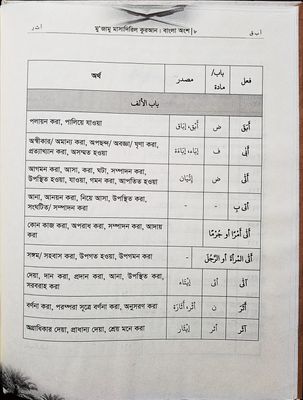 أ ث ر
মু'জামু মাসাদিরিল কুরআন : বাংলা অংশ | ৮
أ ب ق
অর্থ مصدر باب/ مادة فعل
باب الألف
পলায়ন করা, পালিয়ে যাওয়া أَبَق، إِبَاق ض أَبَقَ
অস্বীকার/ অমান্য করা, অপছন্দ/ অবজ্ঞা/ ঘৃণা করা,
প্রত্যাখ্যান করা, অসম্মত হওয়া إِبَاء، إِبَاءَة ف أَبَى
আগমন করা, আসা, করা, ঘটা, সম্পাদন করা,
উপস্থিত হওয়া, যাওয়া, গমন করা, আপতিত হওয়া إِتْيَان ض أَتَى
আনা, আনয়ন করা, নিয়ে আসা, উপস্থিত করা,
সংঘটিত/ সম্পাদন করা - - أَتَى بِ
কোন কাজ করা, অপরাধ করা, সম্পাদন করা, আদায়
করা أَتَى أَمْرًا أو جُرْمًا
সঙ্গম/ সহবাস করা, উপগত হওয়া, উপগমন করা - أَتَى المَرْأَةَ أو الرَّجُلَ
দেয়া, দান করা, প্রদান করা, আনা, উপস্থিত করা,
সরবরাহ করা إِيْتَاء أتى آتَى
বর্ণনা করা, পরম্পরা সূত্রে বর্ণনা করা, অনুসরণ করা أَثْر، أَثَارَة ن أَثَرَ
অগ্রাধিকার দেয়া, প্রাধান্য দেয়া, শ্রেয় মনে করা إِيْثَار أثر آثَرَ